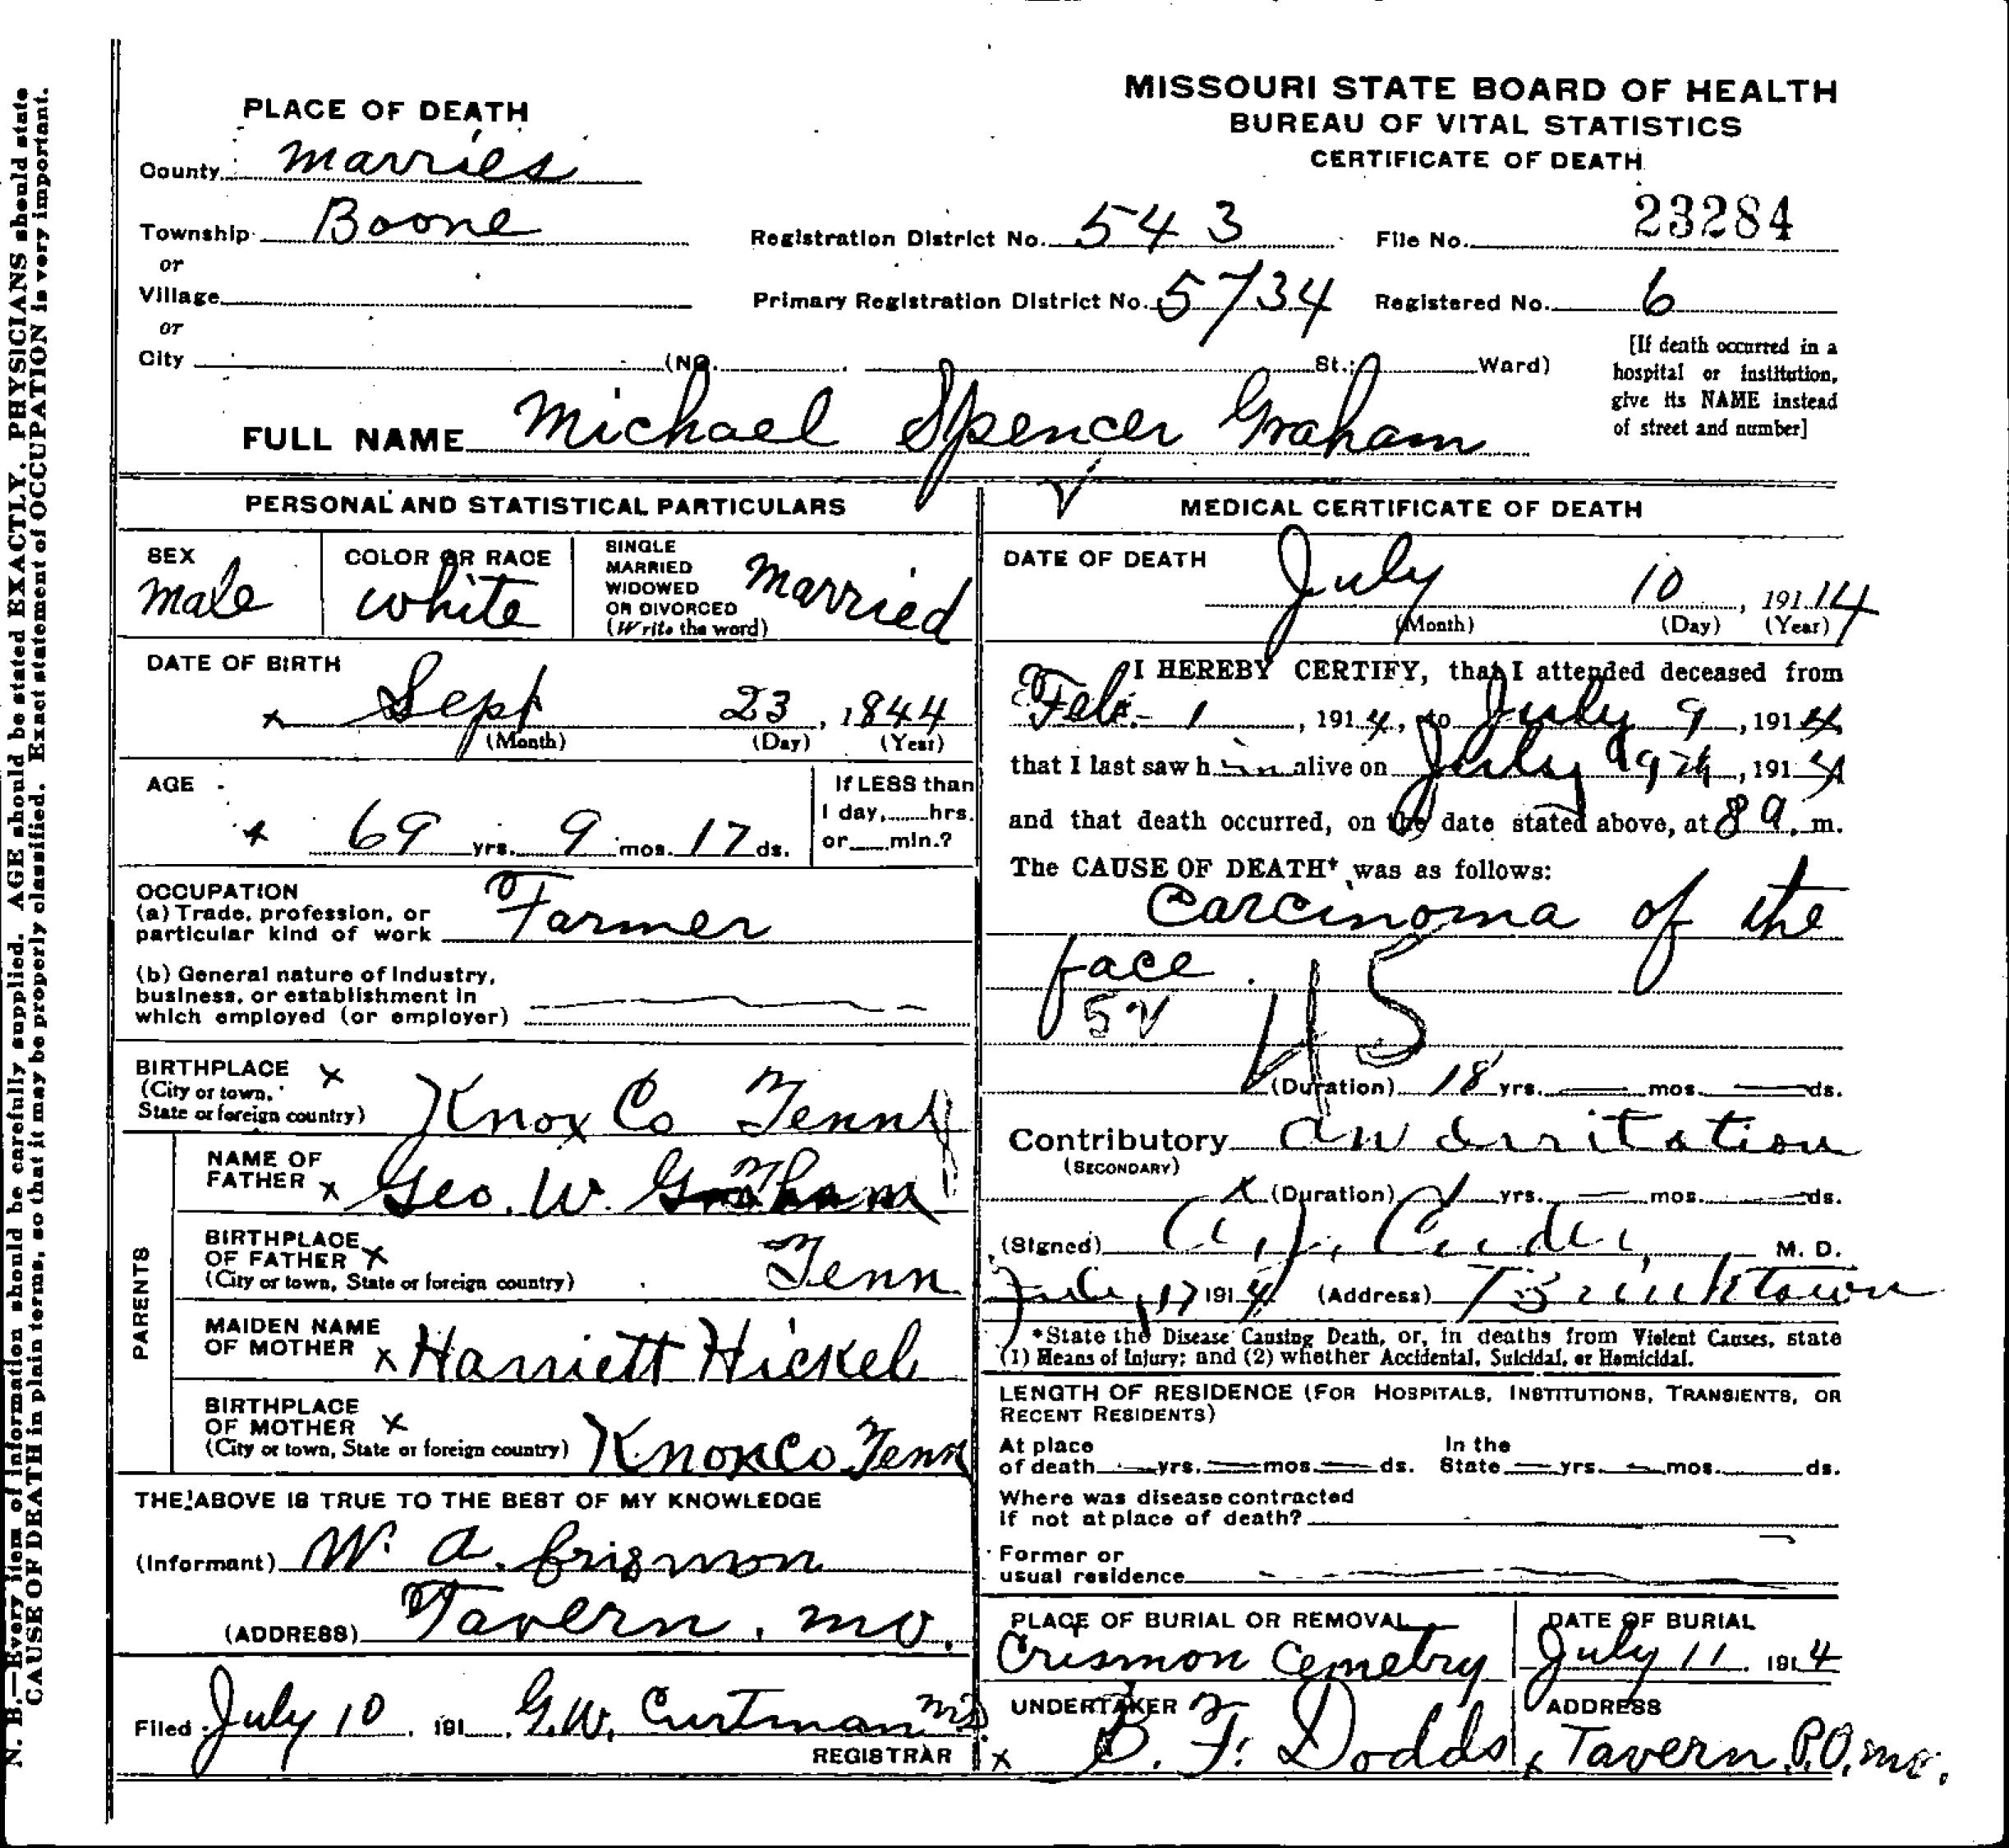 MISSOURI STATE BOARD OF HEALTH
BUREAU OF VITAL STATISTICS
CERTIFICATE OF DEATH
PLACE OF DEATH
County Marries
Township Boone
or
Village
or
City (No. St.; Ward)
Registration District No. 543 File No. 23284
Primary Registration District No. 5734 Registered No. 6
[If death occurred in a
hospital or institution,
give its NAME instead
of street and number]
FULL NAME Michael Spencer Graham
PERSONAL AND STATISTICAL PARTICULARS
SEX
male
COLOR OR RACE
white
SINGLE
MARRIED
WIDOWED
OR DIVORCED
(Write the word)
Married
DATE OF BIRTH
x Sept 23, 1844
(Month) (Day) (Year)
AGE
x 69 yrs. 9 mos. 17 ds.
If LESS than
1 day, hrs.
or min.?
OCCUPATION
(a) Trade, profession, or
particular kind of work Farmer
(b) General nature of Industry,
business, or establishment in
which employed (or employer)
BIRTHPLACE x
(City or town,
State or foreign country) Knox Co Tenn
PARENTS
NAME OF
FATHER x Geo. W. Graham
BIRTHPLACE
OF FATHER x
(City or town, State or foreign country) Tenn
MAIDEN NAME
OF MOTHER x Harriett Hickel
BIRTHPLACE
OF MOTHER x
(City or town, State or foreign country) Knox Co Tenn
THE ABOVE IS TRUE TO THE BEST OF MY KNOWLEDGE
(Informant) W. A. Crismon
(ADDRESS) Tavern, Mo.
Filed July 10, 191 G.W. Curtman MD
REGISTRAR
MEDICAL CERTIFICATE OF DEATH
DATE OF DEATH
July 10, 191 14
(Month) (Day) (Year)
I HEREBY CERTIFY, that I attended deceased from
Feb. 1, 1914, to July 9, 1914
that I last saw him alive on July 9th, 1914
and that death occurred, on the date stated above, at 8 a. m.
The CAUSE OF DEATH* was as follows:
Carcinoma of the
face
45
(Duration) 18 yrs. mos. ds.
Contributory an irritation
(SECONDARY)
(Duration) yrs. mos. ds.
(Signed) M. D.
17 1914 (Address) Brinktown
*State the Disease Causing Death, or, in deaths from Violent Causes, state
(1) Means of Injury; and (2) whether Accidental, Suicidal, or Homicidal.
LENGTH OF RESIDENCE (FOR HOSPITALS, INSTITUTIONS, TRANSIENTS, OR
RECENT RESIDENTS)
At place
of death yrs. mos. ds.
In the
State yrs. mos. ds.
Where was disease contracted
If not at place of death?
Former or
usual residence
PLACE OF BURIAL OR REMOVAL
Crismon Cemetry
DATE OF BURIAL
July 11, 1914
UNDERTAKER
x B. F. Dodds
ADDRESS
x Tavern P.O. Mo.
N. B.—Every item of information should be carefully supplied. AGE should be stated EXACTLY. PHYSICIANS should state
CAUSE OF DEATH in plain terms, so that it may be properly classified. Exact statement of OCCUPATION is very important.